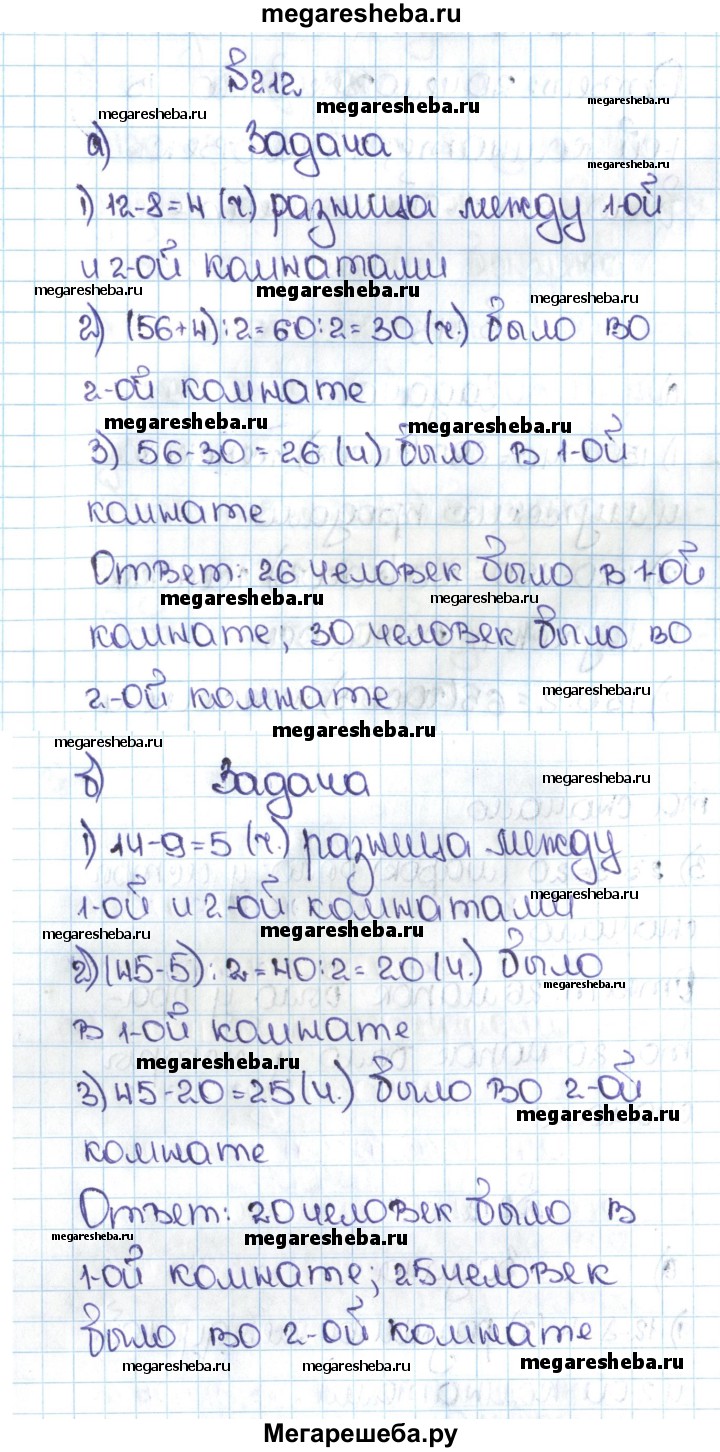 megaresheba.ru
№212
megaresheba.ru megaresheba.ru megaresheba.ru
а) Задача
megaresheba.ru
1) 12-8=4 (ч.) разница между 1-ой
и 2-ой комнатами
megaresheba.ru megaresheba.ru megaresheba.ru
2) (56+4):2=60:2=30 (ч.) было во
2-ой комнате
megaresheba.ru megaresheba.ru
3) 56-30=26 (ч) было в 1-ой
комнате
Ответ: 26 человек было в 1-ой
megaresheba.ru megaresheba.ru
комнате; 30 человек было во
2-ой комнате
megaresheba.ru
megaresheba.ru
megaresheba.ru
б) Задача
megaresheba.ru
1) 14-9=5 (ч.) разница между
1-ой и 2-ой комнатами
megaresheba.ru
megaresheba.ru megaresheba.ru
2) (45-5):2=40:2=20 (ч.) было
megaresheba.ru
в 1-ой комнате
megaresheba.ru
3) 45-20=25 (ч.) было во 2-ой
megaresheba.ru
комнате
Ответ: 20 человек было в
megaresheba.ru megaresheba.ru
1-ой комнате; 25 человек
было во 2-ой комнате
megaresheba.ru megaresheba.ru megaresheba.ru
Мегарешеба.ру